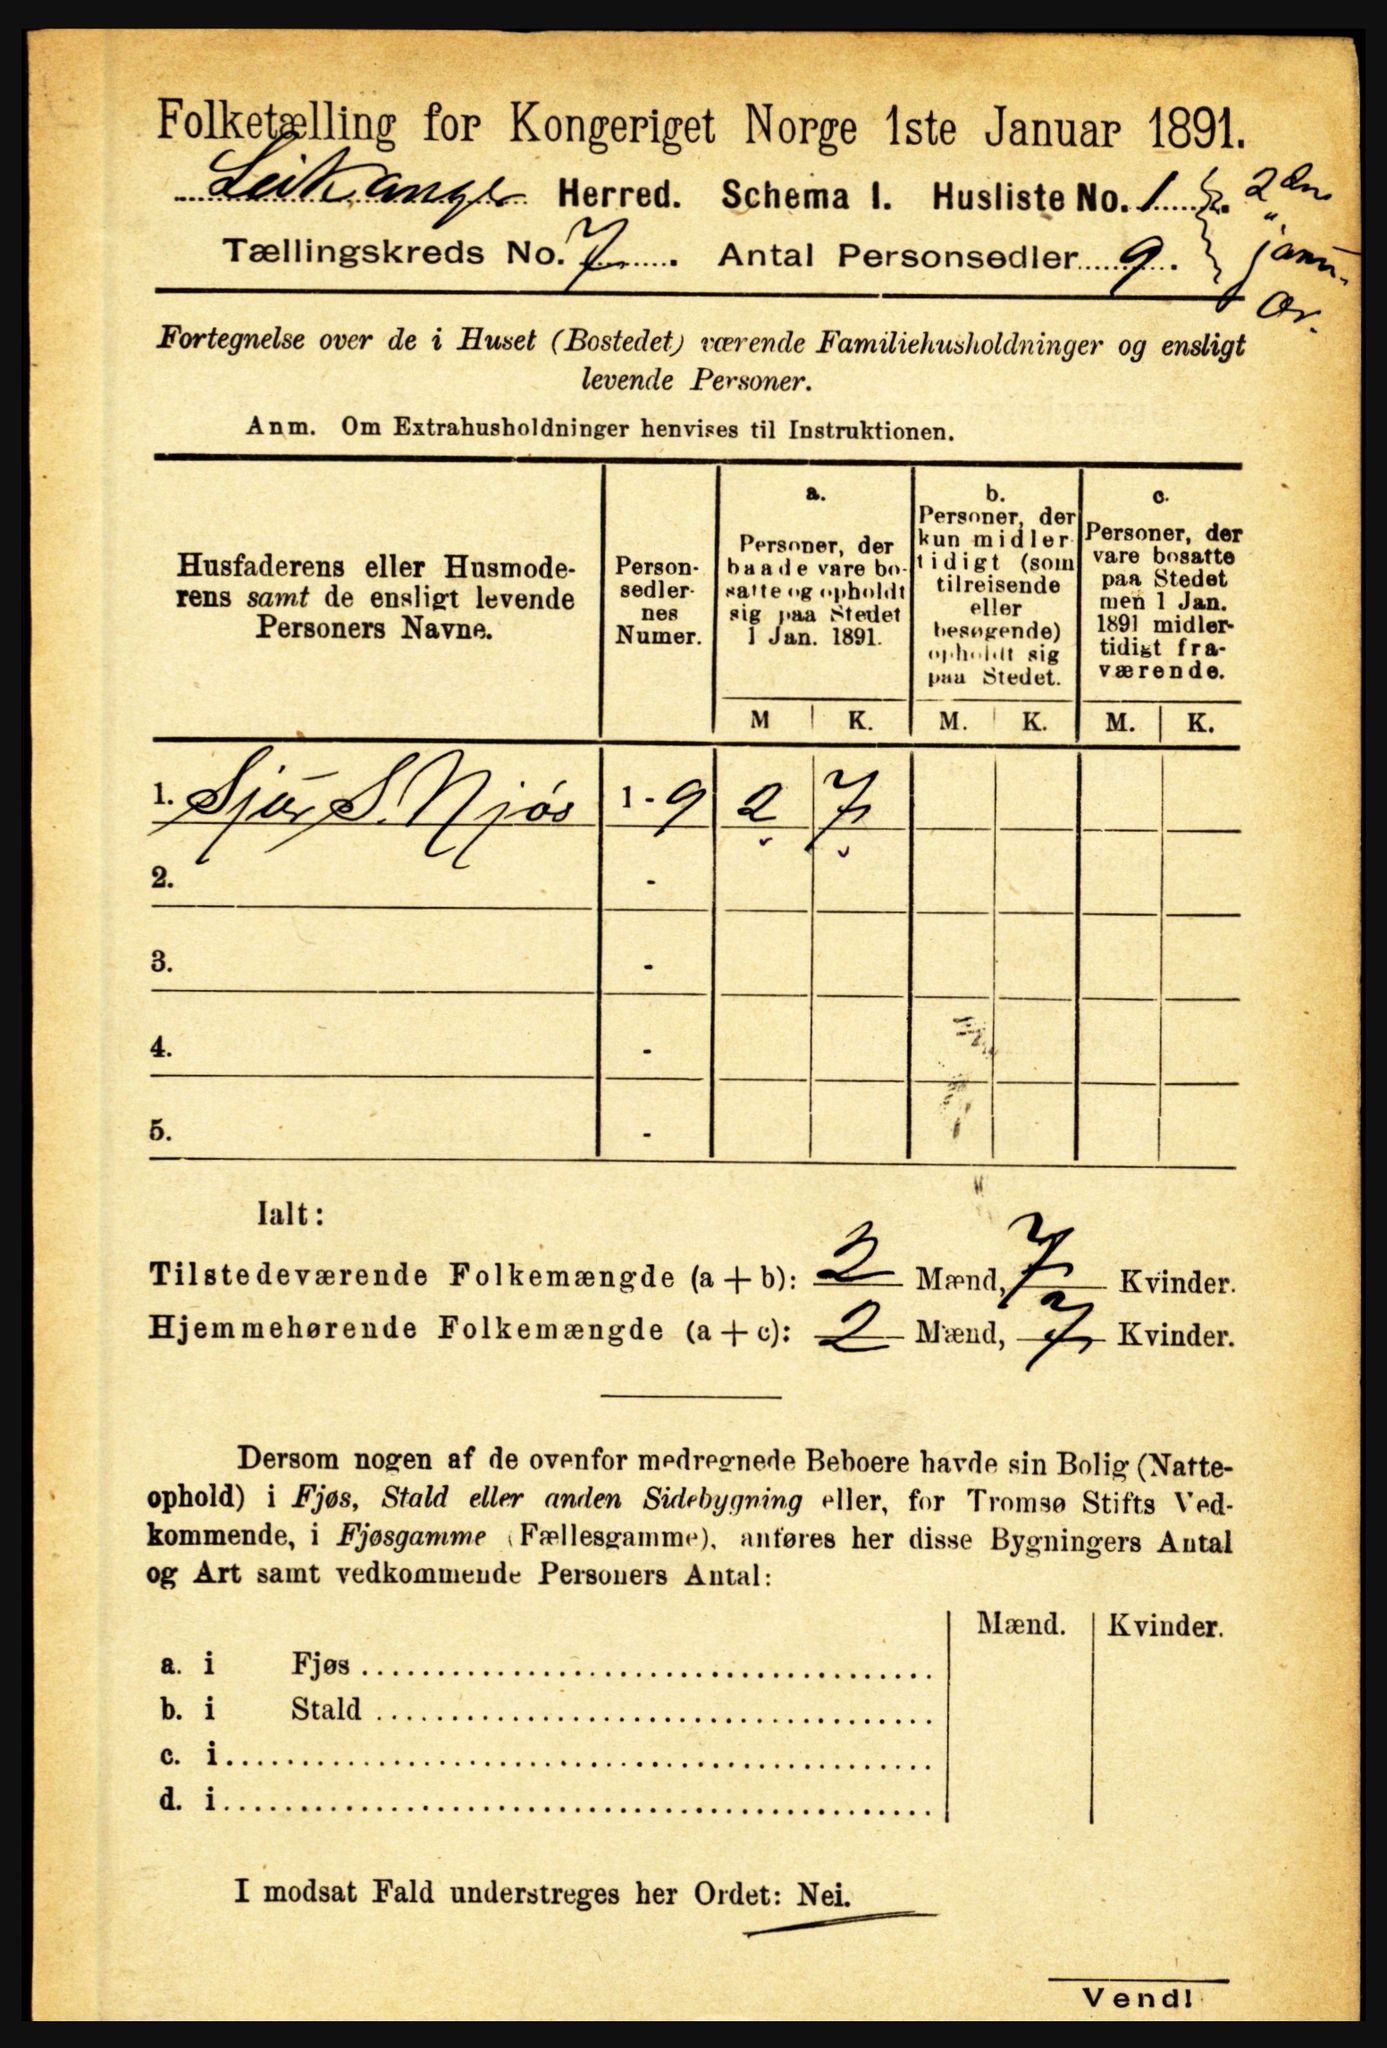 Folketælling for Kongeriget Norge 1ste Januar 1891.
Leikanger Herred. Schema I. Husliste No. 1. 2den
Tællingskreds No. 7. Antal Personsedler 9. janu-
ar.
Fortegnelse over de i Huset (Bostedet) værende Familiehusholdninger og ensligt
levende Personer.
Anm. Om Extrahusholdninger henvises til Instruktionen.
Husfaderens eller Husmode-
rens samt de ensligt levende
Personers Navne.
Person-
sedler-
nes
Numer.
a.
Personer, der
baade vare bo-
satte og opholdt
sig paa Stedet
1 Jan. 1891.
M K.
b.
Personer, der
kun midler-
tidigt (som
tilreisende
eller
besøgende)
opholdt sig
paa Stedet.
M. K.
c.
Personer, der
vare bosatte
paa Stedet
men 1 Jan.
1891 midler-
tidigt fra-
værende.
M. K.
1. S. Njøs 1 - 9 2 7
2. -
3. -
4. -
5. -
Ialt:
Tilstedeværende Folkemængde (a + b): 2 Mænd, 7 Kvinder.
Hjemmehørende Folkemængde (a + c): 2 Mænd, 7 Kvinder.
Dersom nogen af de ovenfor medregnede Beboere havde sin Bolig (Natte-
ophold) i Fjøs, Stald eller anden Sidebygning eller, for Tromsø Stifts Ved-
kommende, i Fjøsgamme (Fællesgamme), anføres her disse Bygningers Antal
og Art samt vedkommende Personers Antal:
Mænd. Kvinder.
a. i Fjøs
b. i Stald
c. i
d. i
I modsat Fald understreges her Ordet: Nei.
Vend!